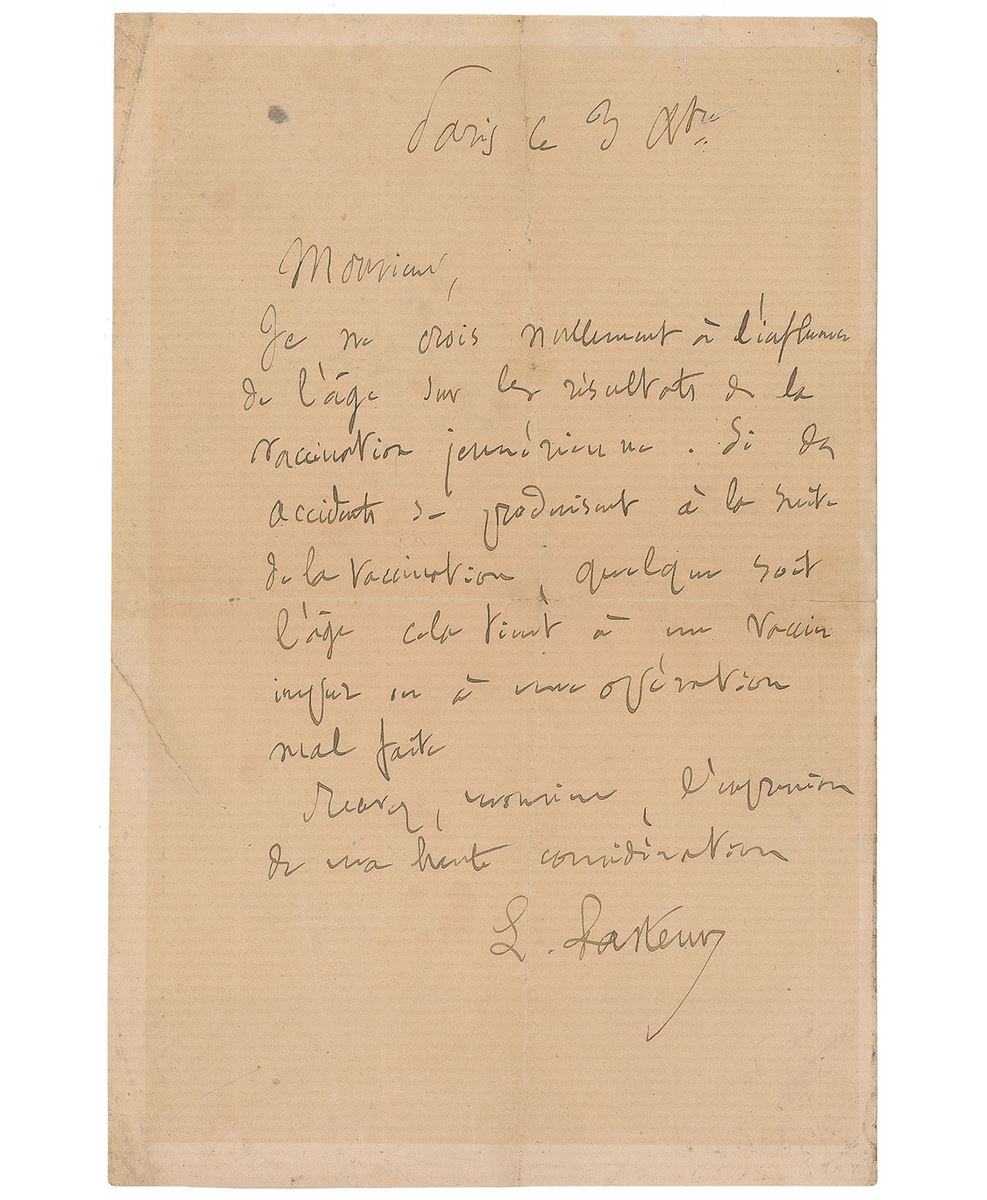 Paris le 3 Xbre
Monsieur,
Je ne crois nullement à l'influence
de l'âge sur les résultats de la
vaccination jennérienne. Si des
accidents se produisent à la suite
de la vaccination, quelque soit
l'âge cela tient à un vaccin
impur ou à une opération
mal faite
Recevez, monsieur, l'expression
de ma haute considération
L. Pasteur